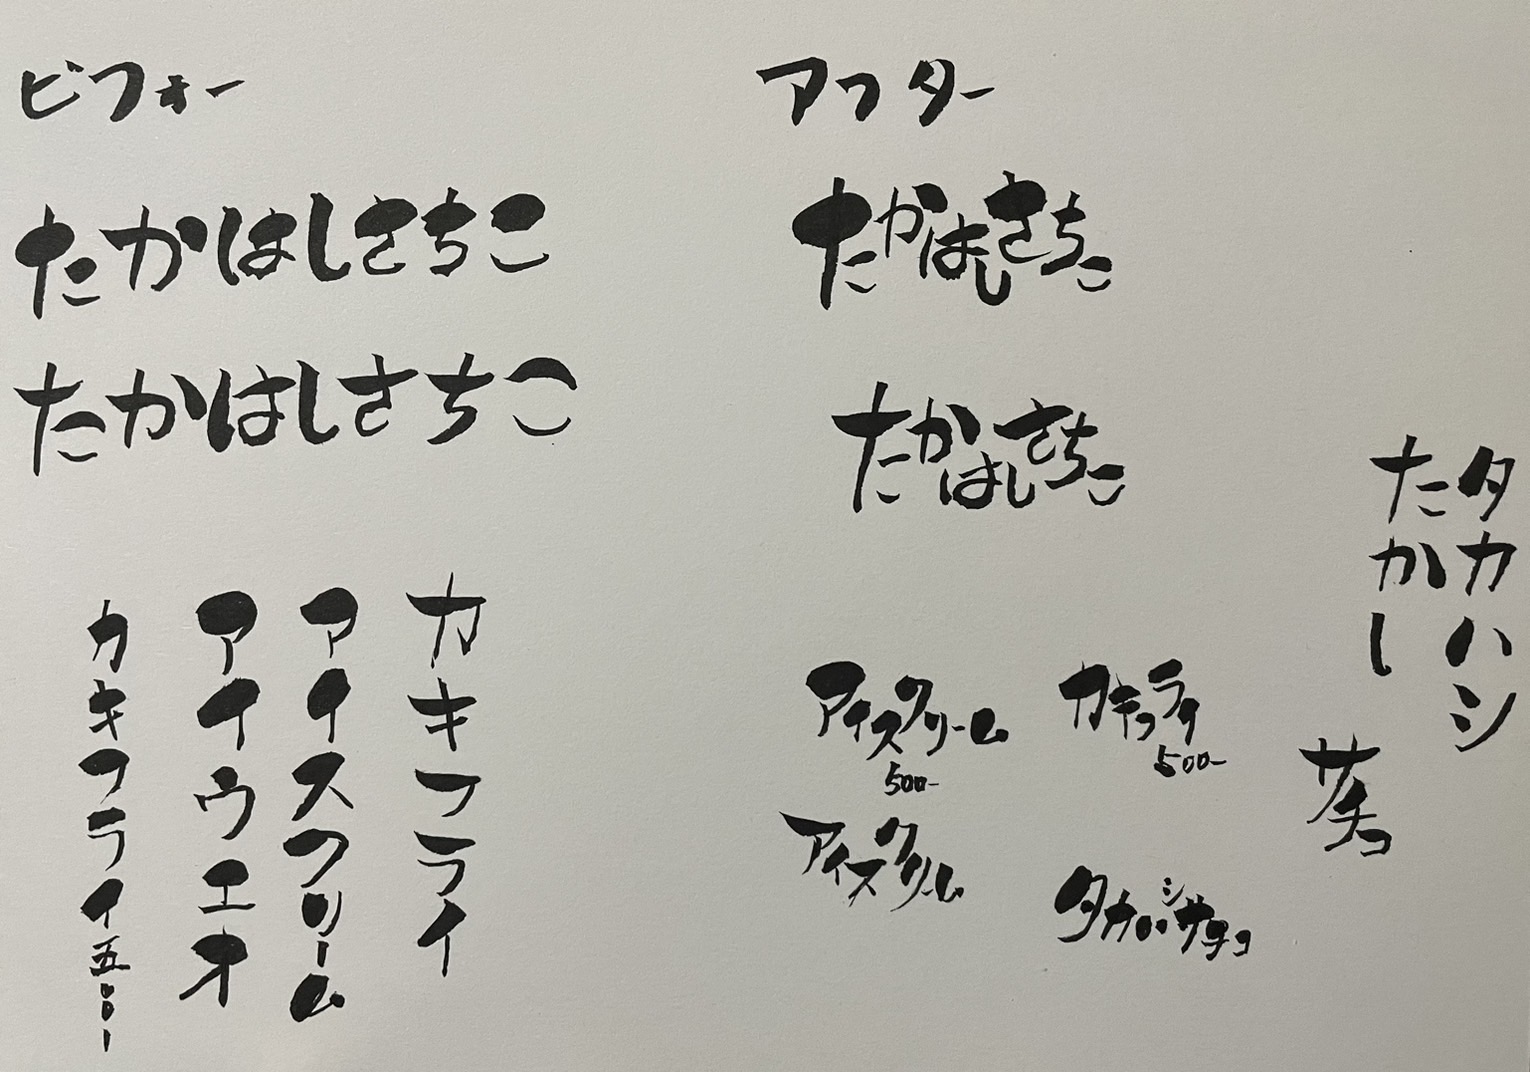 ビフォー
たかはしさちこ
たかはしさちこ
カキフライ
アイスクリーム
アイウエオ
カキフライ五〇〇ー
アフター
たかはしさちこ
たかはしさちこ
タカハシ
たかし
サチコ
カキフライ
500-
アイスクリーム
500-
アイスクリーム
タカハシサチコ